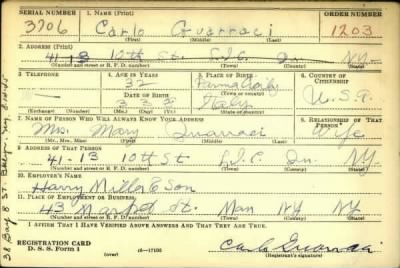 SERIAL NUMBER 1. NAME (Print) ORDER NUMBER
3706 Carlo Guarraci 1203
(First) (Middle) (Last)
2. ADDRESS (Print)
41-13 10th St. L.I.C. Qu. NY
(Number and street or R. F. D. number) (Town) (County) (State)
3. TELEPHONE 4. AGE IN YEARS 5. PLACE OF BIRTH 6. COUNTRY OF CITIZENSHIP
32
DATE OF BIRTH
Italy U.S.A.
(Exchange) (Number) (Mo.) (Day) (Yr.) (State or country)
7. NAME OF PERSON WHO WILL ALWAYS KNOW YOUR ADDRESS 8. RELATIONSHIP OF THAT PERSON
Mrs. Mary Guarraci Wife
(Mr., Mrs., Miss) (First) (Middle) (Last)
9. ADDRESS OF THAT PERSON
41-13 10th St L.I.C. Qu. NY
(Number and street or R. F. D. number) (Town) (County) (State)
10. EMPLOYER'S NAME
Harry Miller & Son
11. PLACE OF EMPLOYMENT OR BUSINESS
43 Market St Man NY NY
(Number and street or R. F. D. number) (Town) (County) (State)
I AFFIRM THAT I HAVE VERIFIED ABOVE ANSWERS AND THAT THEY ARE TRUE.
REGISTRATION CARD
D. S. S. Form 1 (over) Carlo Guarraci
(Registrant's signature)
38 Bay 8 St.